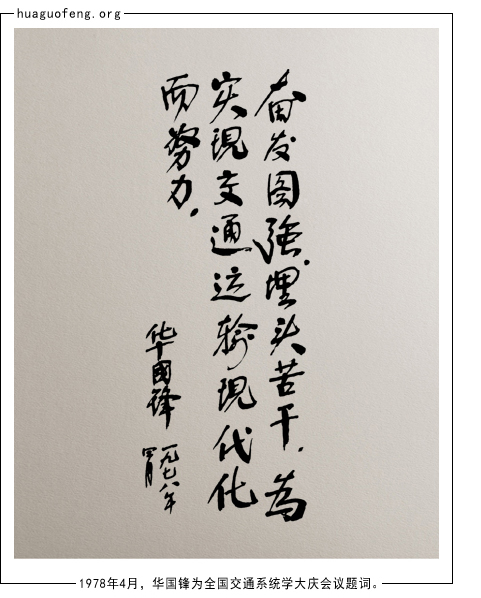 huaguofeng.org
奋发图强，埋头苦干，为
实现交通运输现代化
而努力。
华国锋
一九七八年
四月
1978年4月，华国锋为全国交通系统学大庆会议题词。